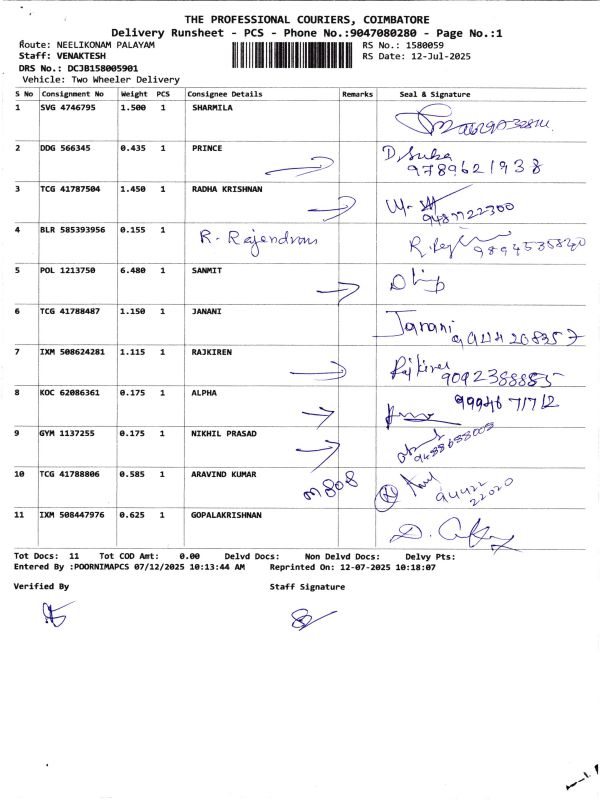 THE PROFESSIONAL COURIERS, COIMBATORE
Delivery Runsheet - PCS - Phone No.:9047080280 - Page No.:1
Route: NEELIKONAM PALAYAM RS No.: 1580059
Staff: VENAKTESH RS Date: 12-Jul-2025
DRS No.: DCJB158005901
Vehicle: Two Wheeler Delivery
S No Consignment No Weight PCS Consignee Details Remarks Seal & Signature
1 SVG 4746795 1.500 1 SHARMILA
2 DDG 566345 0.435 1 PRINCE
9789621938
3 TCG 41787504 1.450 1 RADHA KRISHNAN
9487722300
4 BLR 585393956 0.155 1 R. Rajendran
9894535840
5 POL 1213750 6.480 1 SANMIT
6 TCG 41788487 1.150 1 JANANI Janani
9944208357
7 IXM 508624281 1.115 1 RAJKIREN Rajkiren
9092388885
8 KOC 62086361 0.175 1 ALPHA 9994671712
9 GYM 1137255 0.175 1 NIKHIL PRASAD
10 TCG 41788806 0.585 1 ARAVIND KUMAR
94422
22020
11 IXM 508447976 0.625 1 GOPALAKRISHNAN
Tot Docs: 11 Tot COD Amt: 0.00 Delvd Docs: Non Delvd Docs: Delvy Pts:
Entered By :POORNIMAPCS 07/12/2025 10:13:44 AM Reprinted On: 12-07-2025 10:18:07
Verified By Staff Signature